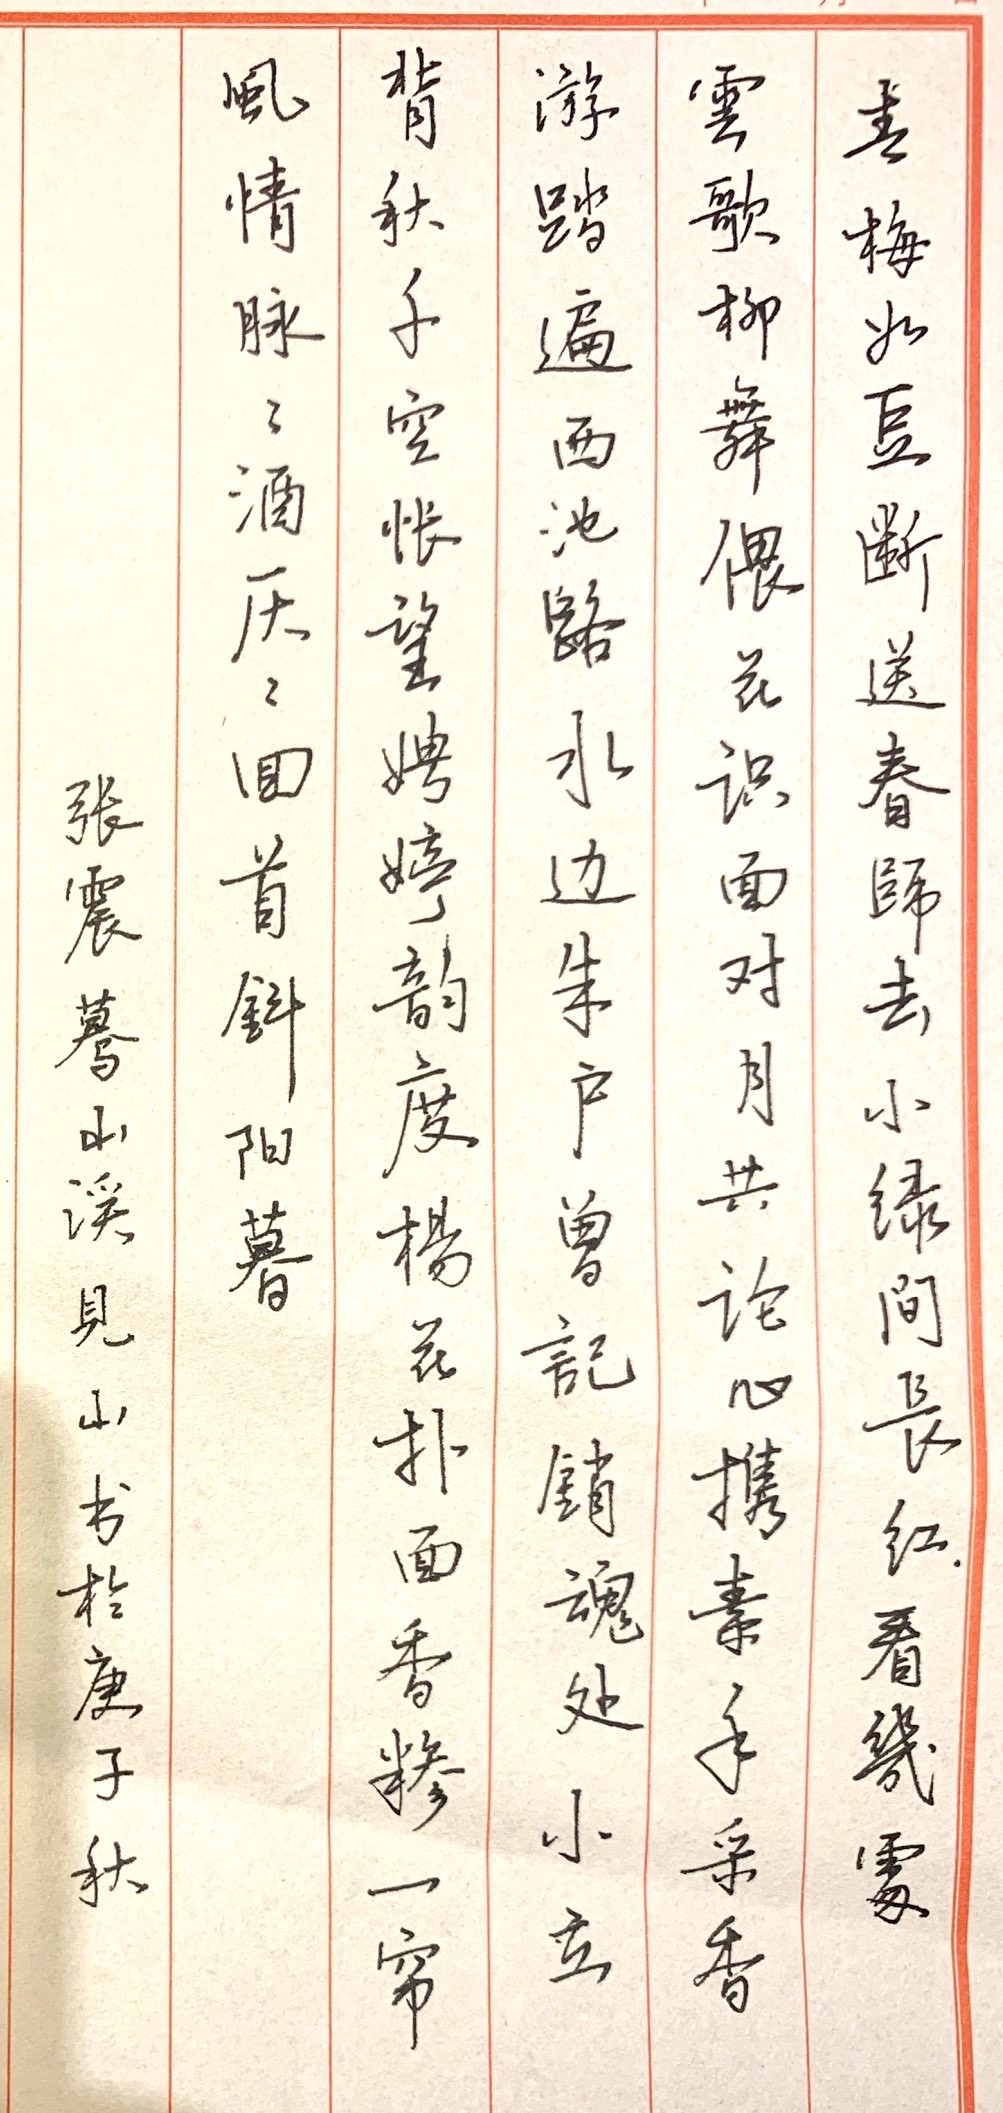 青梅如豆断送春歸去小绿間長红看幾處
雲歌柳舞偎花识面对月共论心携素手采香
游踏遍西池路水边朱户曾記銷魂处小立
背秋千空怅望娉婷韵度楊花扑面香糁一帘
風情脉〻酒厌〻回首斜阳暮
張震蓦山溪見山书於庚子秋